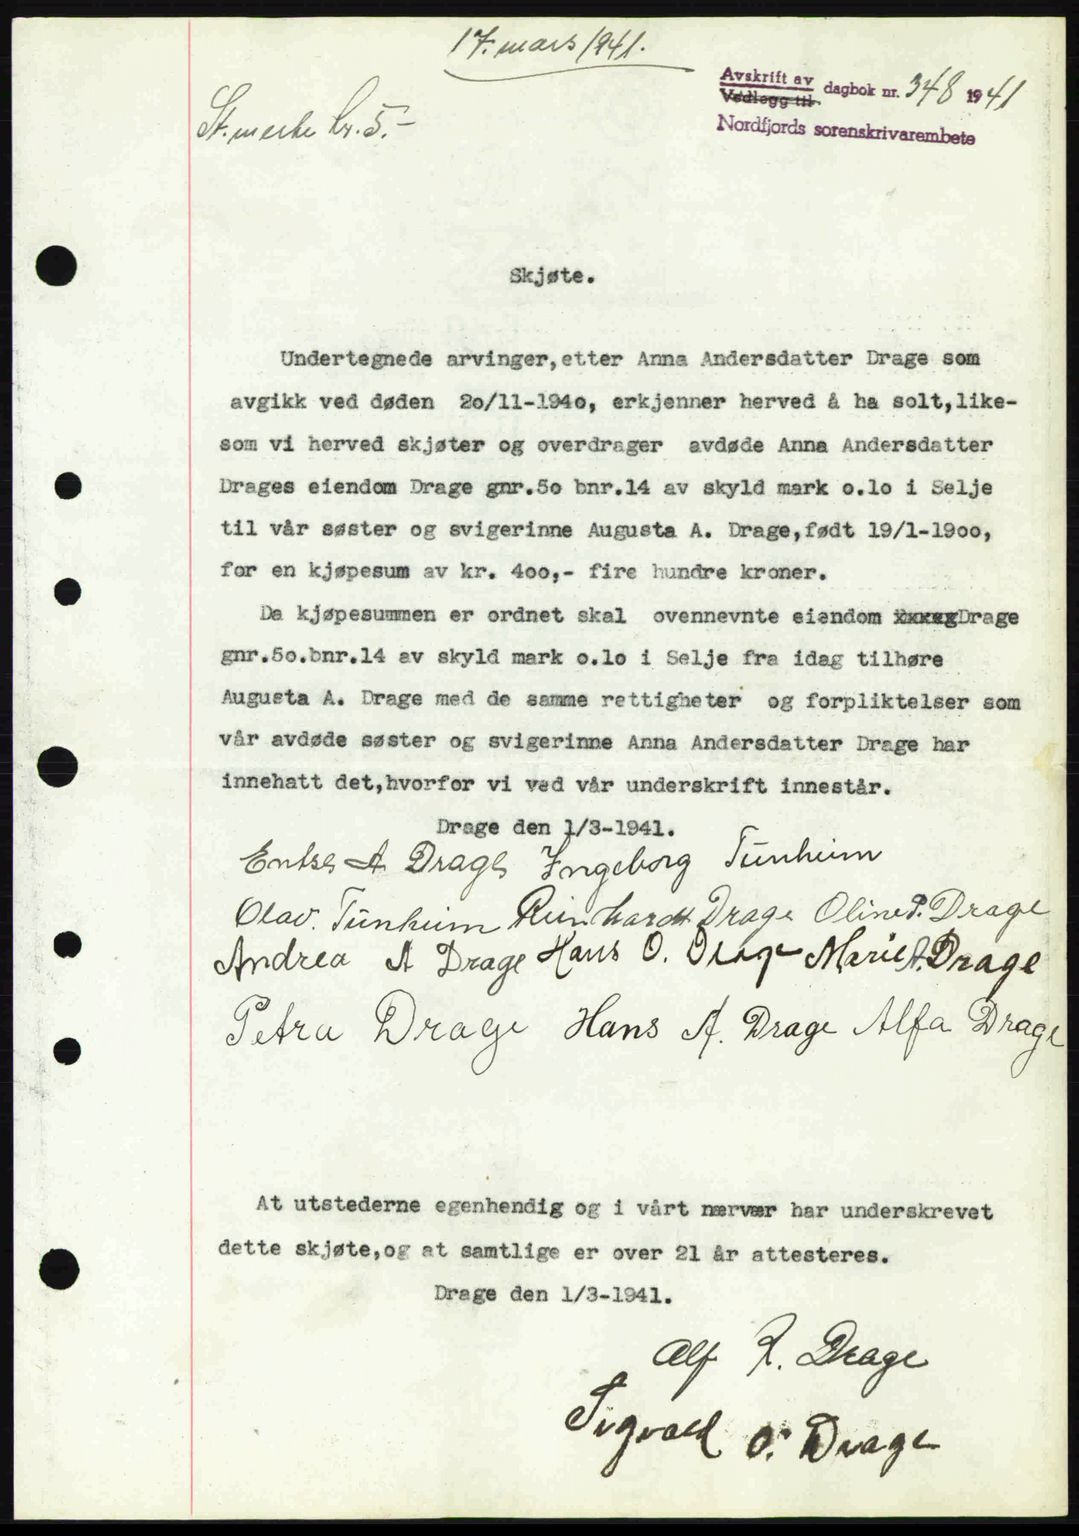 17. mars 1941.
Avskrift av
Vedlegg til dagbok nr. 348 1941
Nordfjords sorenskrivarembete
St.merke kr. 5.-
Skjøte.
Undertegnede arvinger,etter Anna Andersdatter Drage som
avgikk ved døden 2o/11-194o, erkjenner herved å ha solt,like-
som vi herved skjøter og overdrager avdøde Anna Andersdatter
Drages eiendom Drage gnr.5o bnr.14 av skyld mark o.1o i Selje
til vår søster og svigerinne Augusta A. Drage,født 19/1-19oo,
for en kjøpesum av kr. 4oo,- fire hundre kroner.
Da kjøpesummen er ordnet skal ovennevnte eiendom Drage
gnr.5o.bnr.14 av skyld mark o.1o i Selje fra idag tilhøre
Augusta A. Drage med de samme rettigheter og forpliktelser som
vår avdøde søster og svigerinne Anna Andersdatter Drage har
innehatt det,hvorfor vi ved vår underskrift innestår.
Drage den 1/3-1941.
A Drage Ingeborg Tunheim
Olav. Tunheim Reinhardt Drage Oline P. Drage
Andrea A Drage Hans O. Drage Marie A. Drage
Petra Drage Hans A. Drage Alfa Drage
At utstederne egenhendig og i vårt nærvær har underskrevet
dette skjøte,og at samtlige er over 21 år attesteres.
Drage den 1/3-1941.
Alf R. Drage
Sigvald O. Drage